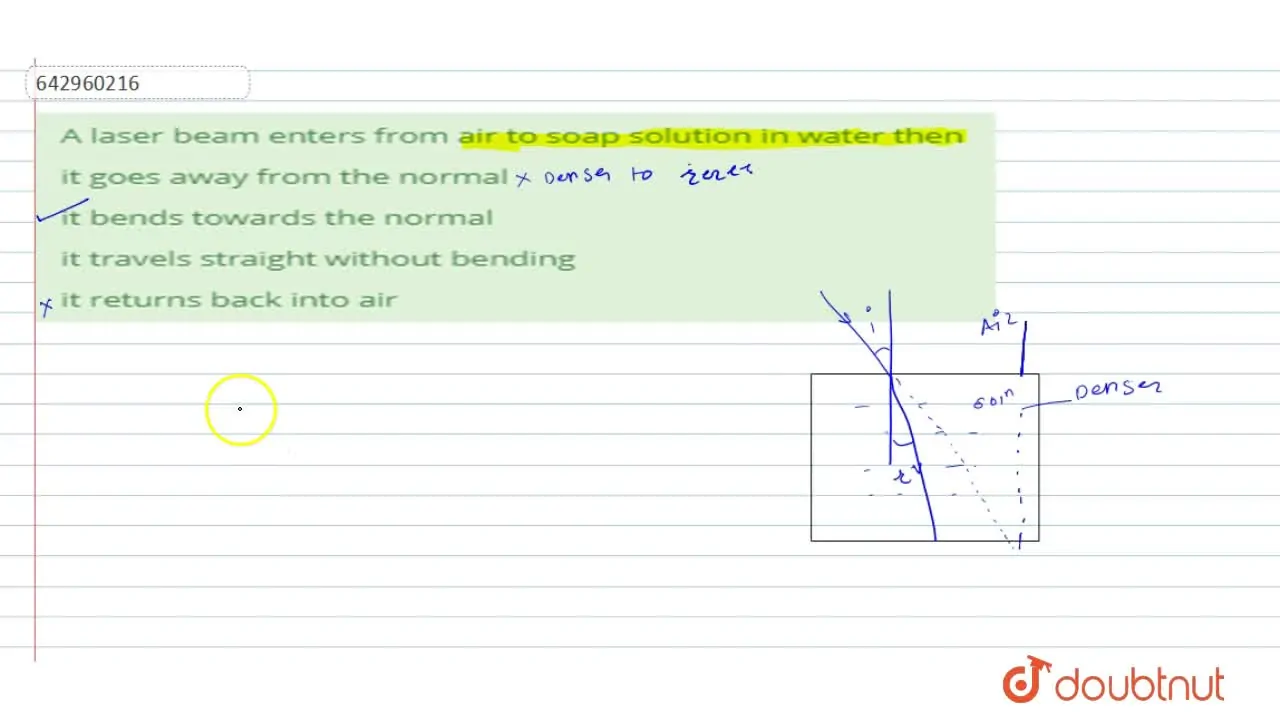 642960216
A laser beam enters from air to soap solution in water then
it goes away from the normal x Denser to rarer
it bends towards the normal
it travels straight without bending
x it returns back into air
i
Air
Denser
soln
r
doubtnut